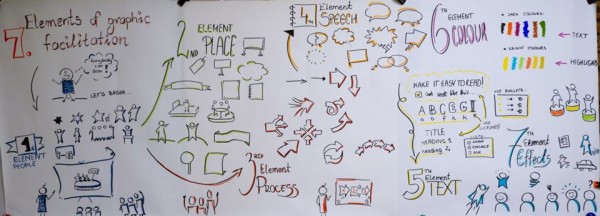 7. Elements of graphic
facilitation
Everybody
can
draw!
LET'S BEGIN...
1.
ELEMENT
PEOPLE
2ND
ELEMENT
PLACE
3RD
Element
PROCESS
4.
Element
SPEECH
MAKE IT EASY TO READ!
A B C E G I
TITLE
HEADING 1
Heading 2
USE BULLETS:
5TH
Element
TEXT
6TH
ELEMENT
COLOUR
DARK COLOURS
TEXT
BRIGHT COLOURS
HIGHLIGH
7TH
Element
Effects